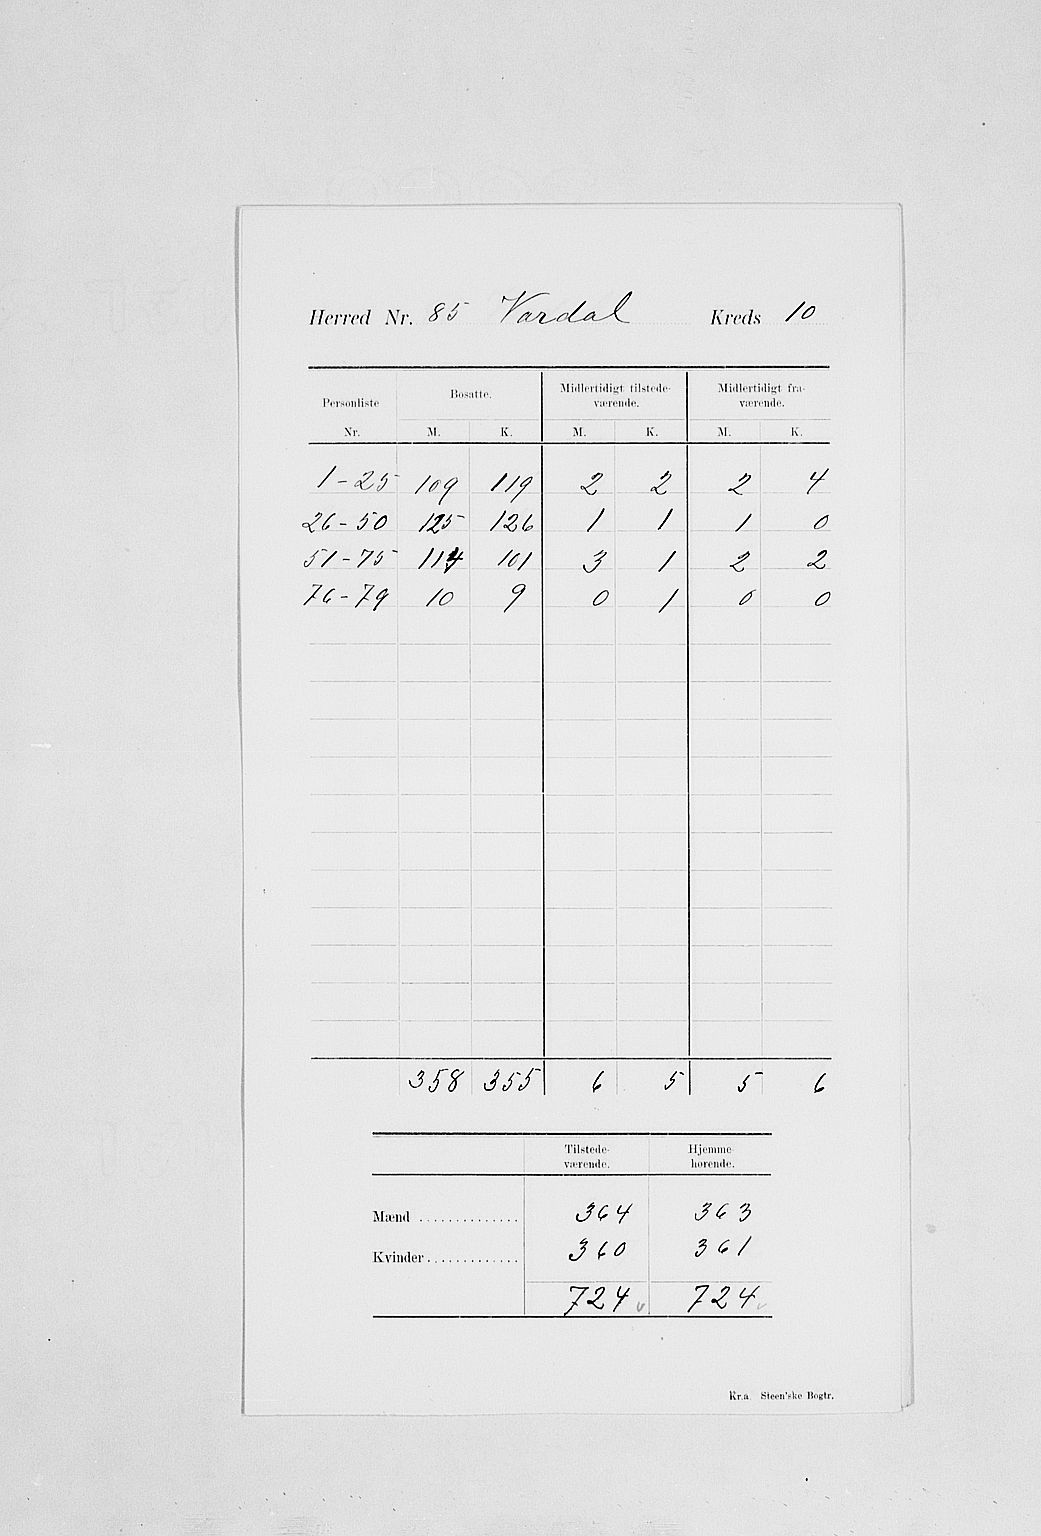 Herred Nr. 85 Vardal Kreds 10
Personliste Bosatte. Midlertidigt tilstede- Midlertidigt fra-
værende. værende.
Nr. M. K. M. K. M. K.
1-25 109 119 2 2 2 4
26-50 125 126 1 1 1 0
51-75 114 101 3 1 2 2
76-79 10 9 0 1 0 0
358 355 6 5 5 6
Tilstede- Hjemme-
værende. hørende.
Mænd .............. 364 363
Kvinder ............. 360 361
724 724
Kr.a. Steen'ske Bogtr.